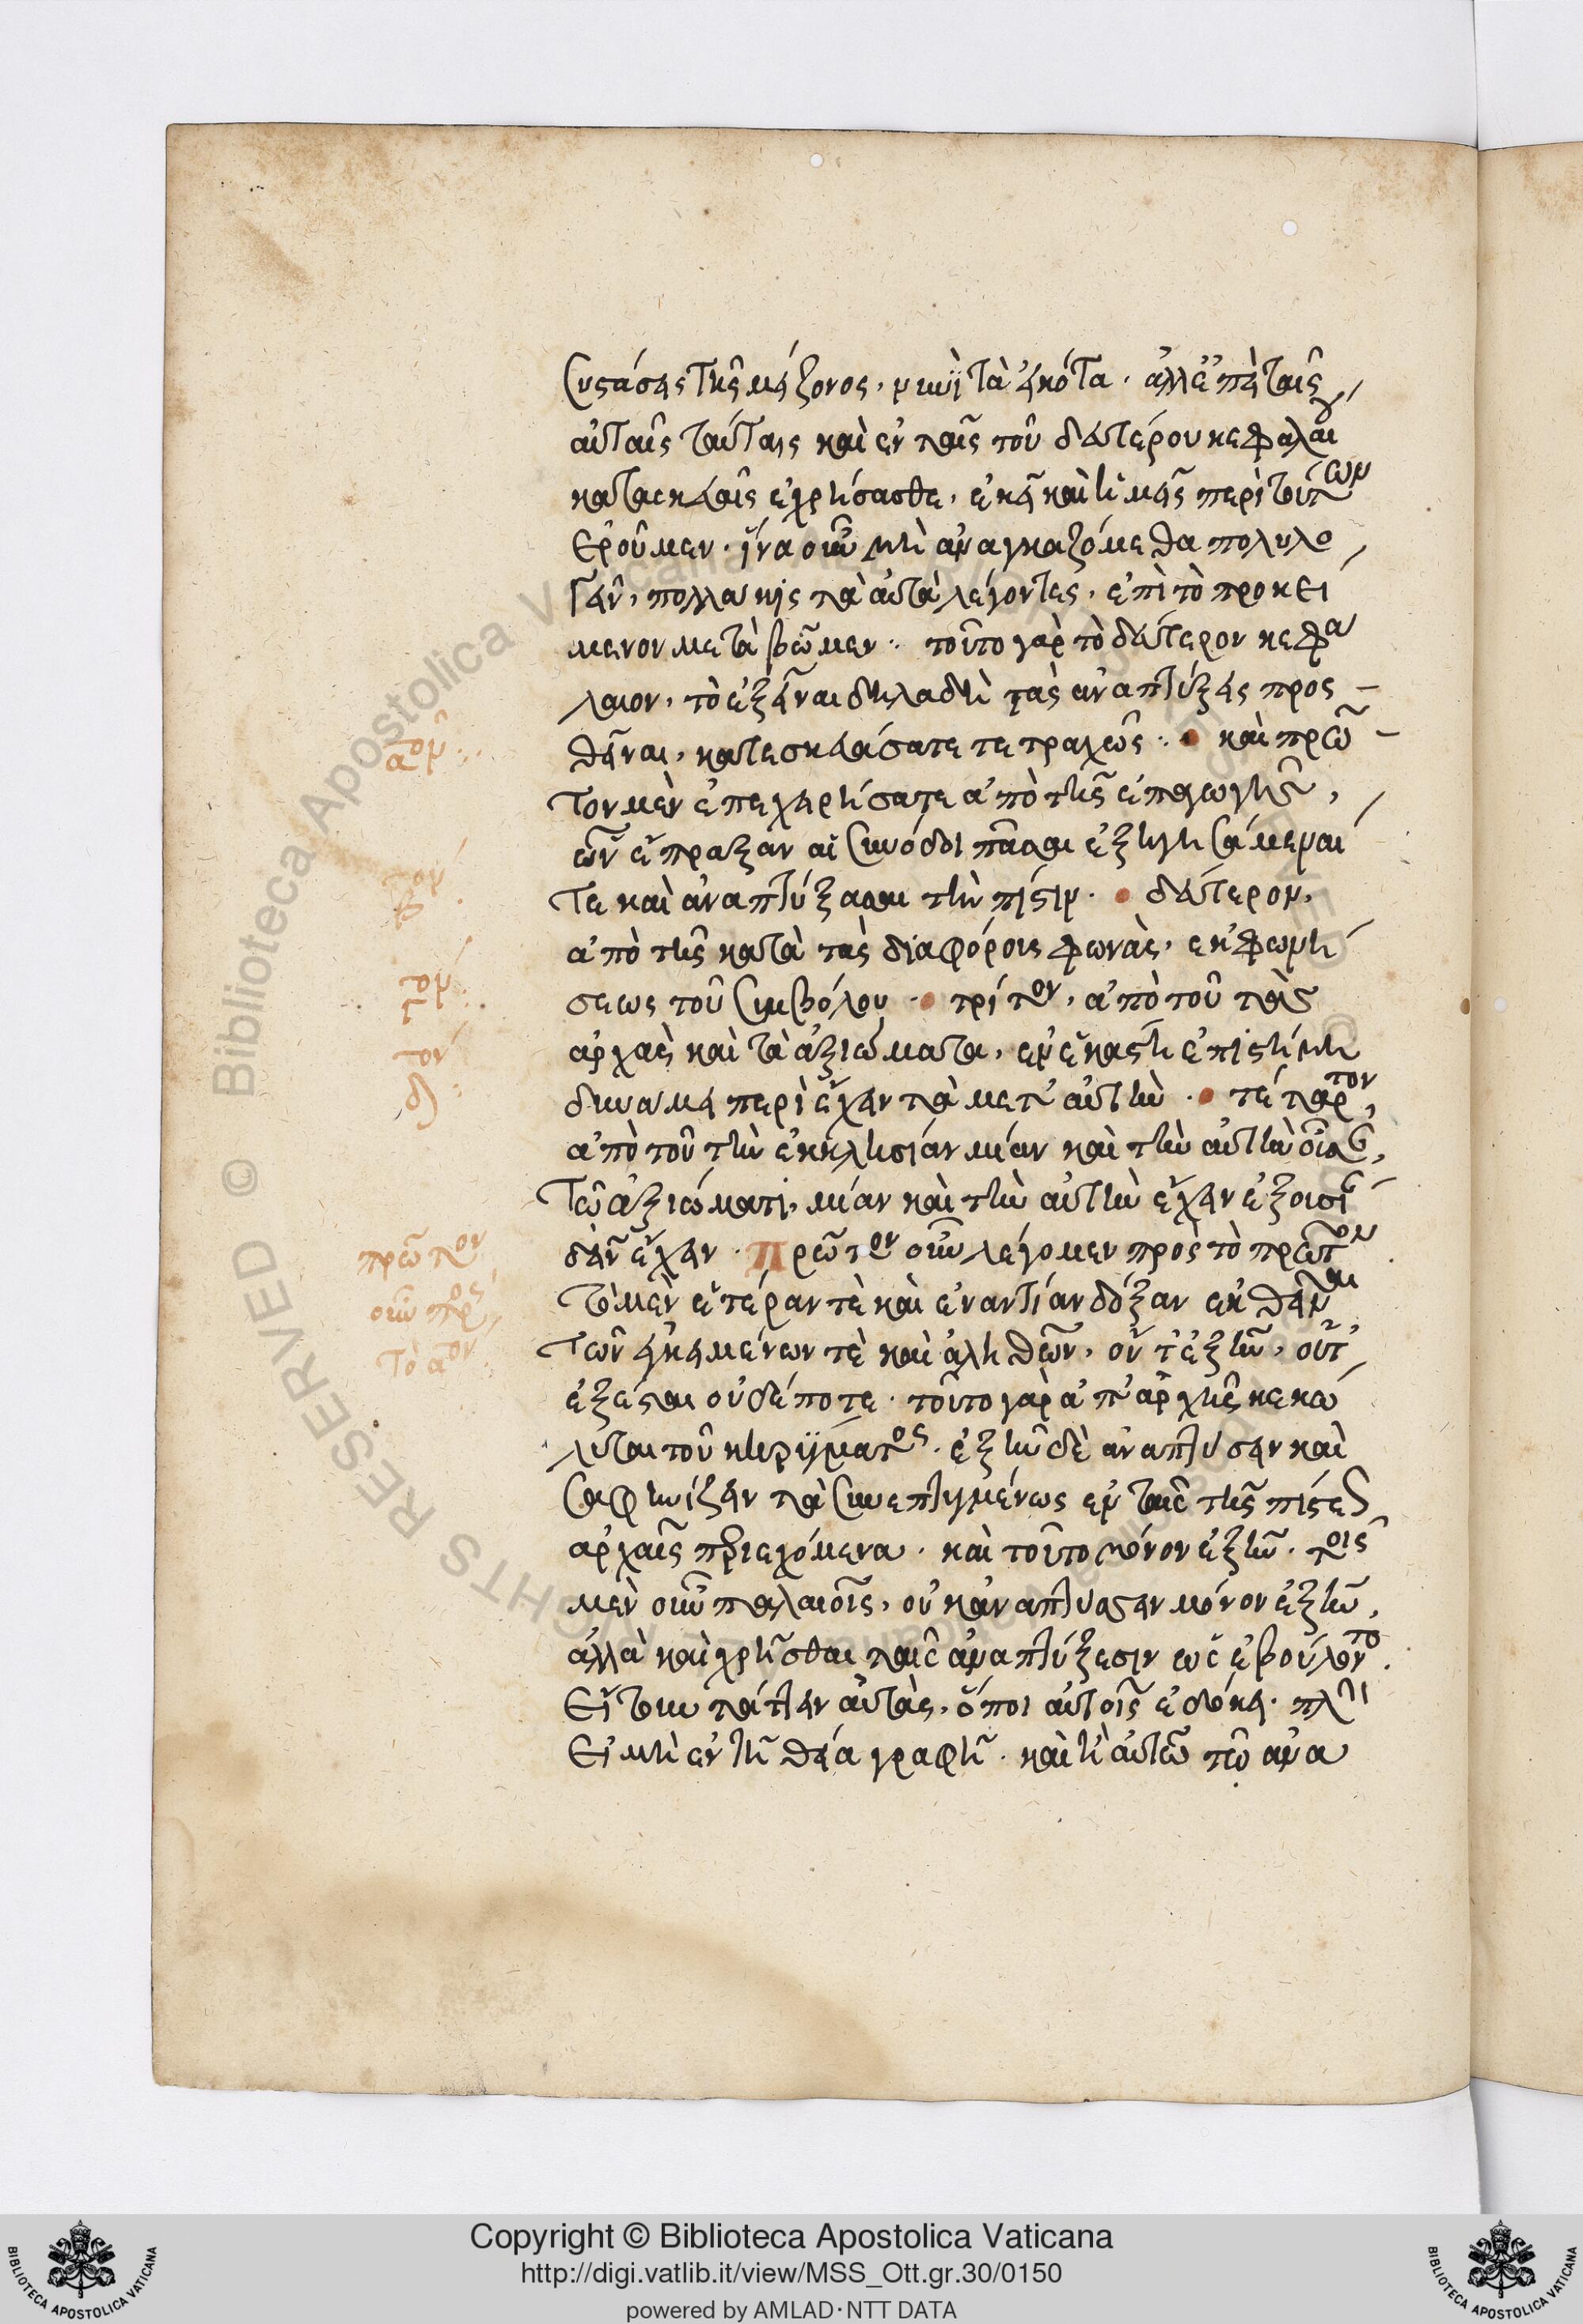 συστάσεις τῆς μείζονος, νυνὶ τὰ εἰκότα. ἀλλ' ἐπεὶ ταῖς
αὐταῖς ταύταις καὶ ἐν ταῖς τοῦ δευτέρου κεφαλαίου
κατασκευαῖς ἐχρήσασθε, ἐκεῖ καὶ ἡμεῖς περὶ τούτων
ἐροῦμεν. ἵνα οὖν μὴ ἀναγκαζόμεθα πολυλο
γεῖν, πολλακις τὰ αὐτὰ λέγοντες, ἐπὶ τὸ προκεί
μενον μεταβῶμεν. τοῦτο γὰρ τὸ δεύτερον κεφά
λαιον, τὸ ἐξεῖναι δηλαδὴ τὰς ἀναπτύξεις προς
θεῖναι, κατεσκευάσατε τετραχῶς. καὶ πρῶ
τον μὲν ἐπεχειρήσατε ἀπὸ τῆς ἐπαγωγῆς,
ὧν ἔπραξαν αἱ συνόδοι πᾶσαι ἐξηγησάμεναί
τε καὶ ἀναπτύξασαι τὴν πίστιν. δεύτερον,
ἀπὸ τῆς κατὰ τὰς διαφόροις φωνὰς, ἐκφωνή
σεως τοῦ συμβόλου. τρίτον, ἀπὸ τοῦ τὰς
ἀρχὰς καὶ τὰ ἀξιώματα, ἐν ἑκάστη ἐπιστήμη
δυνάμει περιέχειν τὰ μετ' αὐτὴν. τέταρτον,
ἀπὸ τοῦ τὴν ἐκκλησίαν μίαν καὶ τὴν αὐτὴν οὖσαν,
τῶ ἀξιώματι, μίαν καὶ τὴν αὐτὴν ἔχειν ἐξουσίαν
δεῖν ἔχειν. Πρῶτον οὖν λέγομεν πρὸς τὸ πρῶτον.
τὸ μὲν ἑτέραν τὲ καὶ ἐναντίαν δόξαν ἐκθεῖναι
τῶν ἐκκειμένων τὲ καὶ ἀληθῶν, οὔτ' ἐξῆν, οὔτ'
ἐξέσται οὐδέποτε. τοῦτο γὰρ ἀπ' ἀρχῆς κεκώ
λυται τοῦ κηρύγματος. ἐξῆν δὲ ἀναπτύσσειν καὶ
σαφηνίζειν τὰ συνεπτυγμένως ἐν ταῖς τῆς πίστεως
ἀρχαῖς περιεχόμενα. καὶ τοῦτο μόνον ἐξῆν. τοῖς
μὲν οὖν παλαιοῖς, οὐκ ἀναπτύσσειν μόνον ἐξῆν,
ἀλλὰ καὶ χρῆσθαι ταῖς ἀναπτύξεσιν ὡς ἐβούλοντο.
εἴτουν τάττειν αὐτὰς, ὅποι αὐτοῖς ἐδόκει. πλὴν
εἰ μὴ ἐν τῆ θεία γραφῆ. καὶ ἐν αὐτῶ τῶ ἀνα
αον
βον
γον
δον
πρῶτον
οὖν πρὸς
τὸ αον
© Biblioteca Apostolica Vaticana
RIGHTS RESERVED
Copyright © Biblioteca Apostolica Vaticana
http://digi.vatlib.it/view/MSS_Ott.gr.30/0150
powered by AMLAD·NTT DATA
BIBLIOTECA APOSTOLICA VATICANA
BIBLIOTECA APOSTOLICA VATICANA